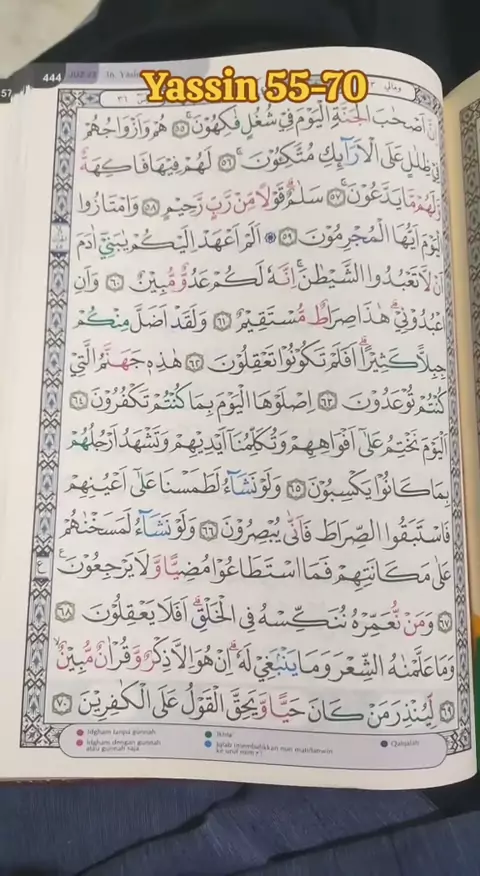 444 JUZ 23 36. Yasin
Yassin 55-70
57
ومالي ٢٣
إِنَّ أَصْحٰبَ الْجَنَّةِ الْيَوْمَ فِيْ شُغُلٍ فٰكِهُوْنَ ۚ ٥٥ هُمْ وَاَزْوَاجُهُمْ
فِيْ ظِلٰلٍ عَلَى الْاَرَاۤىِٕكِ مُتَّكِـُٔوْنَ ۚ ٥٦ لَهُمْ فِيْهَا فَاكِهَةٌ
وَّلَهُمْ مَّا يَدَّعُوْنَ ۚ ٥٧ سَلٰمٌ ۗ قَوْلًا مِّنْ رَّبٍّ رَّحِيْمٍ ٥٨ وَامْتَازُوا
الْيَوْمَ اَيُّهَا الْمُجْرِمُوْنَ ٥٩ اَلَمْ اَعْهَدْ اِلَيْكُمْ يٰبَنِيْٓ اٰدَمَ
اَنْ لَّا تَعْبُدُوا الشَّيْطٰنَ ۚ اِنَّهٗ لَكُمْ عَدُوٌّ مُّبِيْنٌ ٦٠ وَاَنِ
اعْبُدُوْنِيْ ۗ هٰذَا صِرَاطٌ مُّسْتَقِيْمٌ ٦١ وَلَقَدْ اَضَلَّ مِنْكُمْ
جِبِلًّا كَثِيْرًا ۗ اَفَلَمْ تَكُوْنُوْا تَعْقِلُوْنَ ٦٢ هٰذِهٖ جَهَنَّمُ الَّتِيْ
كُنْتُمْ تُوْعَدُوْنَ ٦٣ اِصْلَوْهَا الْيَوْمَ بِمَا كُنْتُمْ تَكْفُرُوْنَ ٦٤
اَلْيَوْمَ نَخْتِمُ عَلٰٓى اَفْوَاهِهِمْ وَتُكَلِّمُنَآ اَيْدِيْهِمْ وَتَشْهَدُ اَرْجُلُهُمْ
بِمَا كَانُوْا يَكْسِبُوْنَ ٦٥ وَلَوْ نَشَاۤءُ لَطَمَسْنَا عَلٰٓى اَعْيُنِهِمْ
فَاسْتَبَقُوا الصِّرَاطَ فَاَنّٰى يُبْصِرُوْنَ ٦٦ وَلَوْ نَشَاۤءُ لَمَسَخْنٰهُمْ
عَلٰى مَكَانَتِهِمْ فَمَا اسْتَطَاعُوْا مُضِيًّا وَّلَا يَرْجِعُوْنَ ع
٦٧ وَمَنْ نُّعَمِّرْهُ نُنَكِّسْهُ فِى الْخَلْقِ ۗ اَفَلَا يَعْقِلُوْنَ ٦٨
وَمَا عَلَّمْنٰهُ الشِّعْرَ وَمَا يَنْۢبَغِيْ لَهٗ ۗ اِنْ هُوَ اِلَّا ذِكْرٌ وَّقُرْاٰنٌ مُّبِيْنٌ ۙ
٦٩ لِّيُنْذِرَ مَنْ كَانَ حَيًّا وَّيَحِقَّ الْقَوْلُ عَلَى الْكٰفِرِيْنَ ٧٠
Idgham tanpa gunnah Ikhfa'
Idgham dengan gunnah atau gunnah saja
Qalqalah